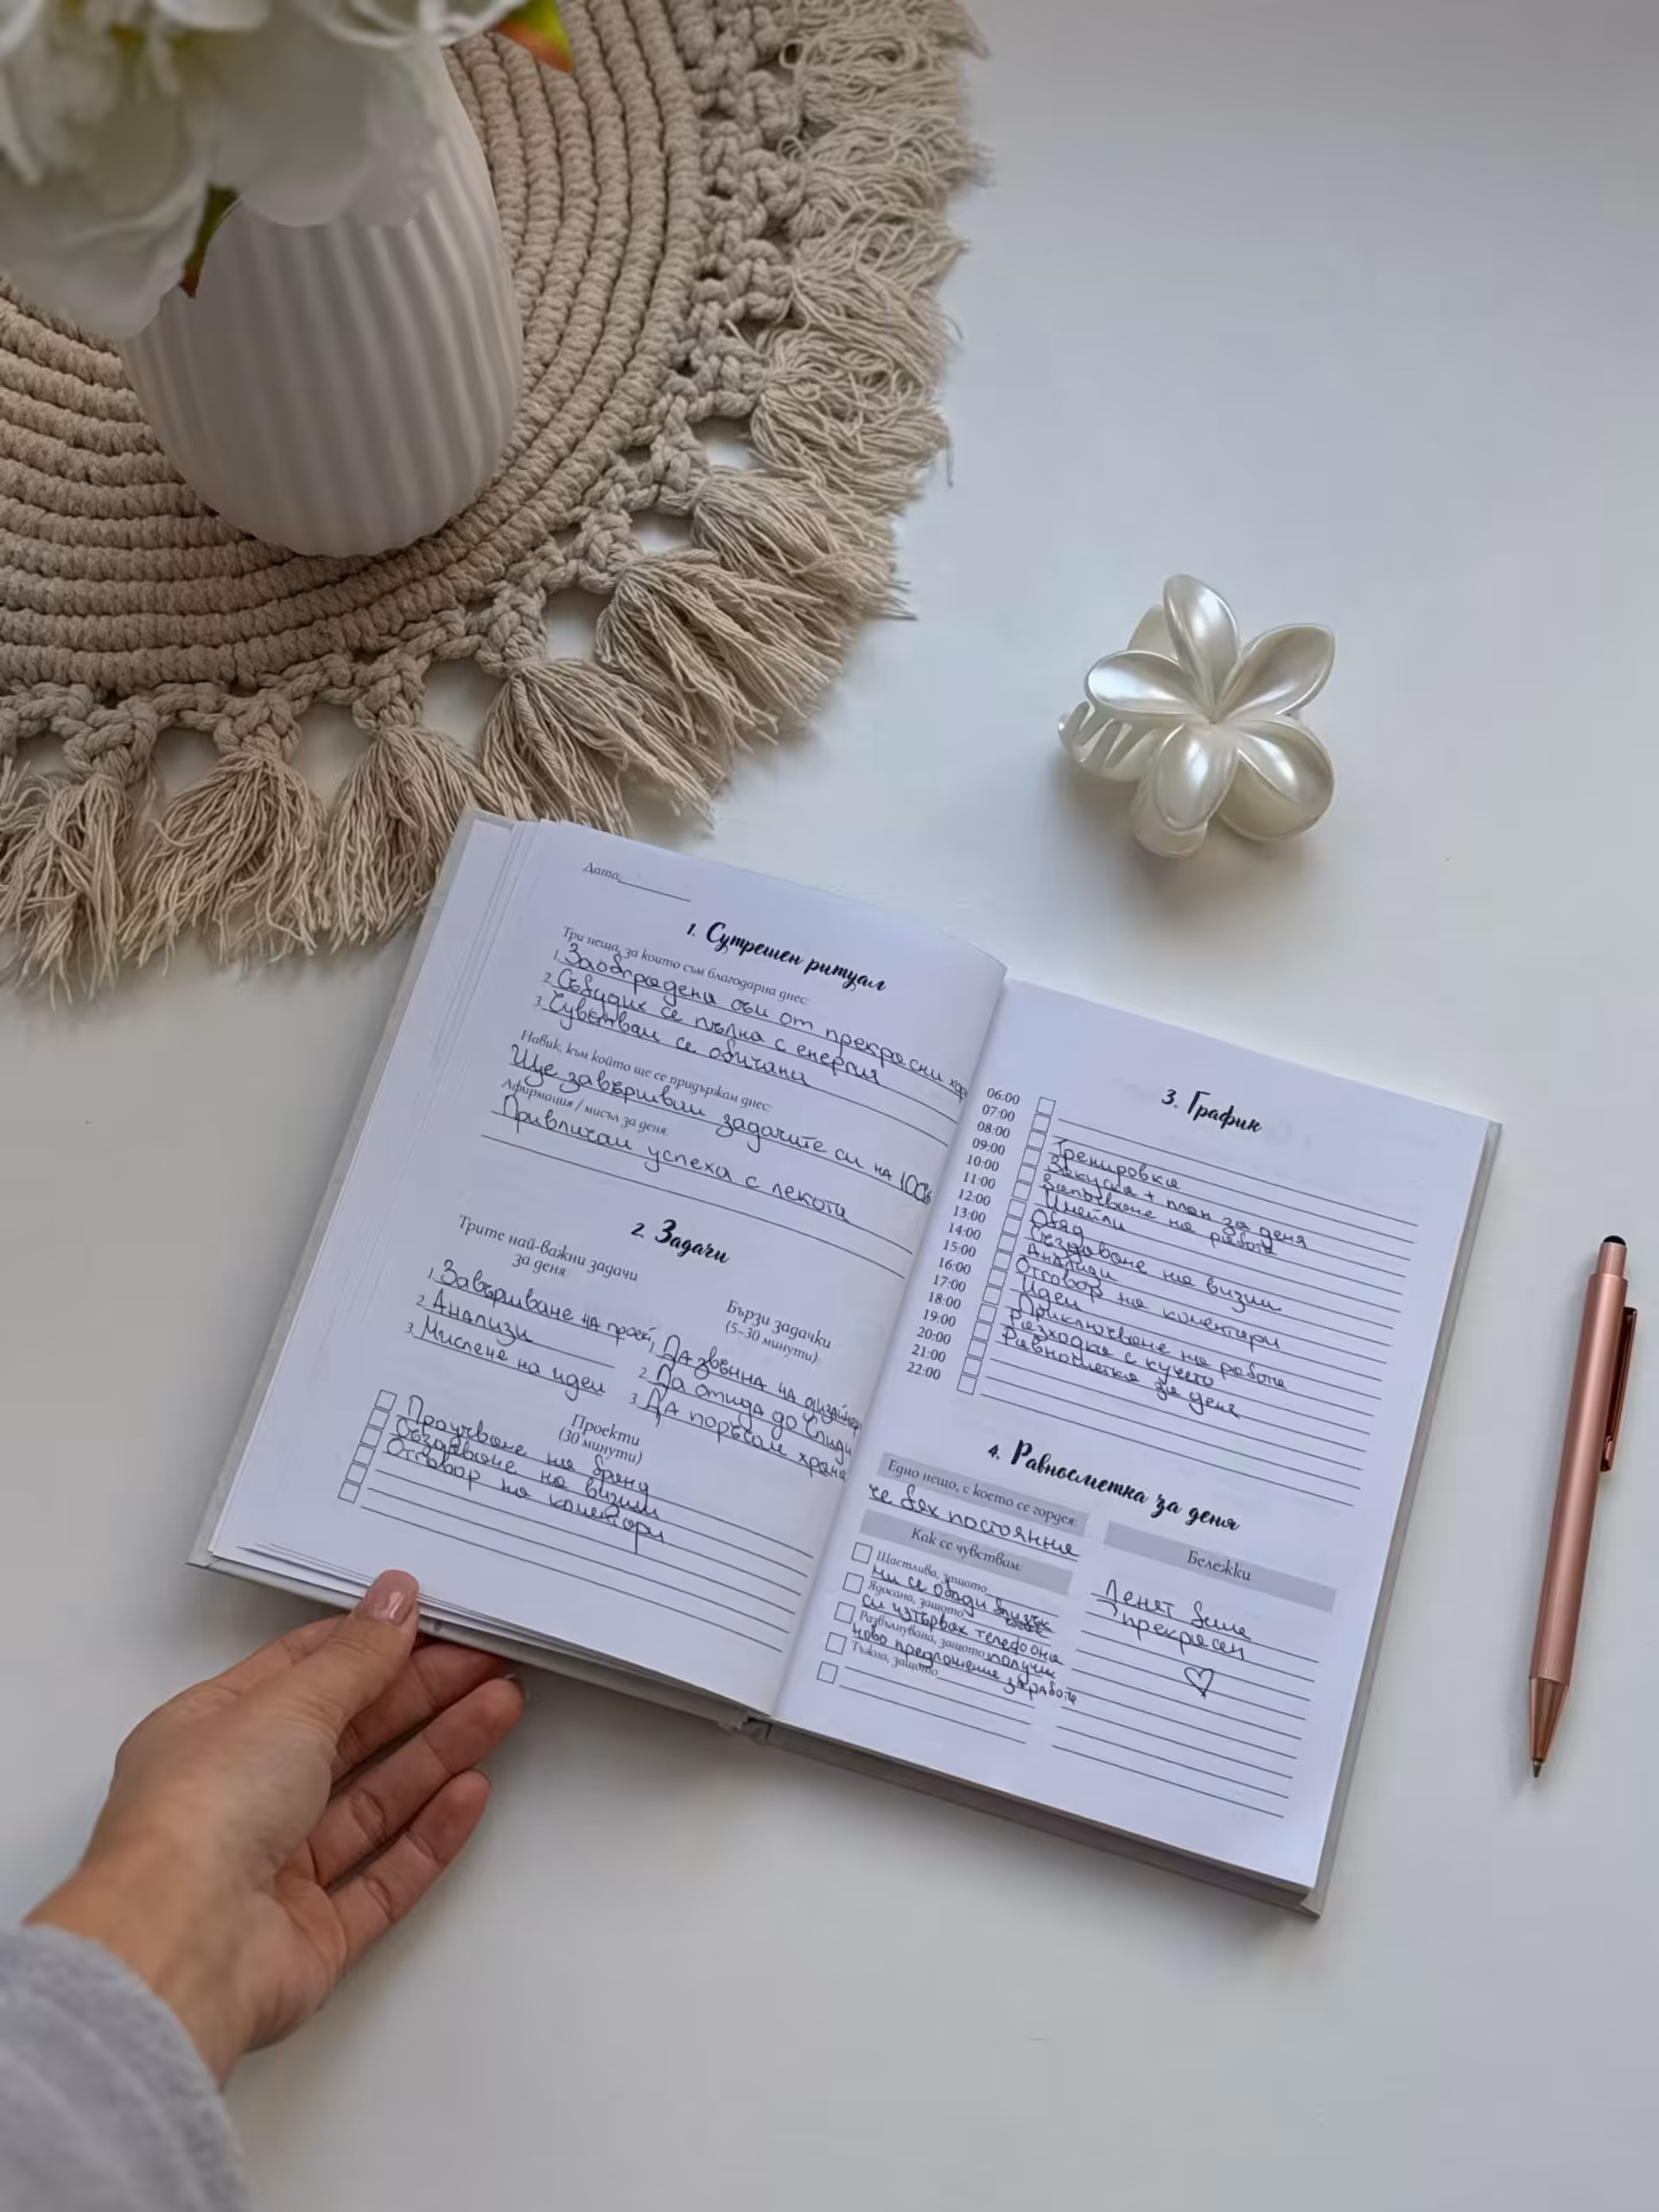 Дата:
1. Сутрешен ритуал
Три неща, за които съм благодарна днес:
1. Заобградена съм от прекрасни хора
2. Събудих се пълна с енергия
3. Чувствам се обичана
Навик, към който ще се придържам днес:
Ще завършвам задачите си на 100%
Афирмация / мисъл за деня:
Привличам успеха с лекота
2. Задачи
Трите най-важни задачи
за деня
1. Завършване на проект
2. Анализи
3. Мислене на идеи
Бързи задачки
(5-30 минути):
1. Да звънна на дизайнер
2. Да отида до Спиди
3. Да поръчам храна
Проекти
(30 минути)
Проучване на бранд
Създаване на визии
Отговор на коментари
3. График
06:00
07:00
08:00 Тренировка
09:00 Закуска + план за деня
10:00 Започване на работа
11:00 Имейли
12:00 Обяд
13:00 Създаване на визии
14:00 Анализи
15:00 Отговор на коментари
16:00 Идеи
17:00 Приключване на работа
18:00 Разходка с кучето
19:00 Равносметка за деня
20:00
21:00
22:00
4. Равносметка за деня
Едно нещо, с което се гордея:
че бях постоянна
Как се чувствам:
Щастлива, защото
ми се обади близък
Ядосана, защото
си изтървах телефона
Развълнувана, защото получих
ново предложение за работа
Тъжна, защото
Бележки
Денят беше
прекрасен